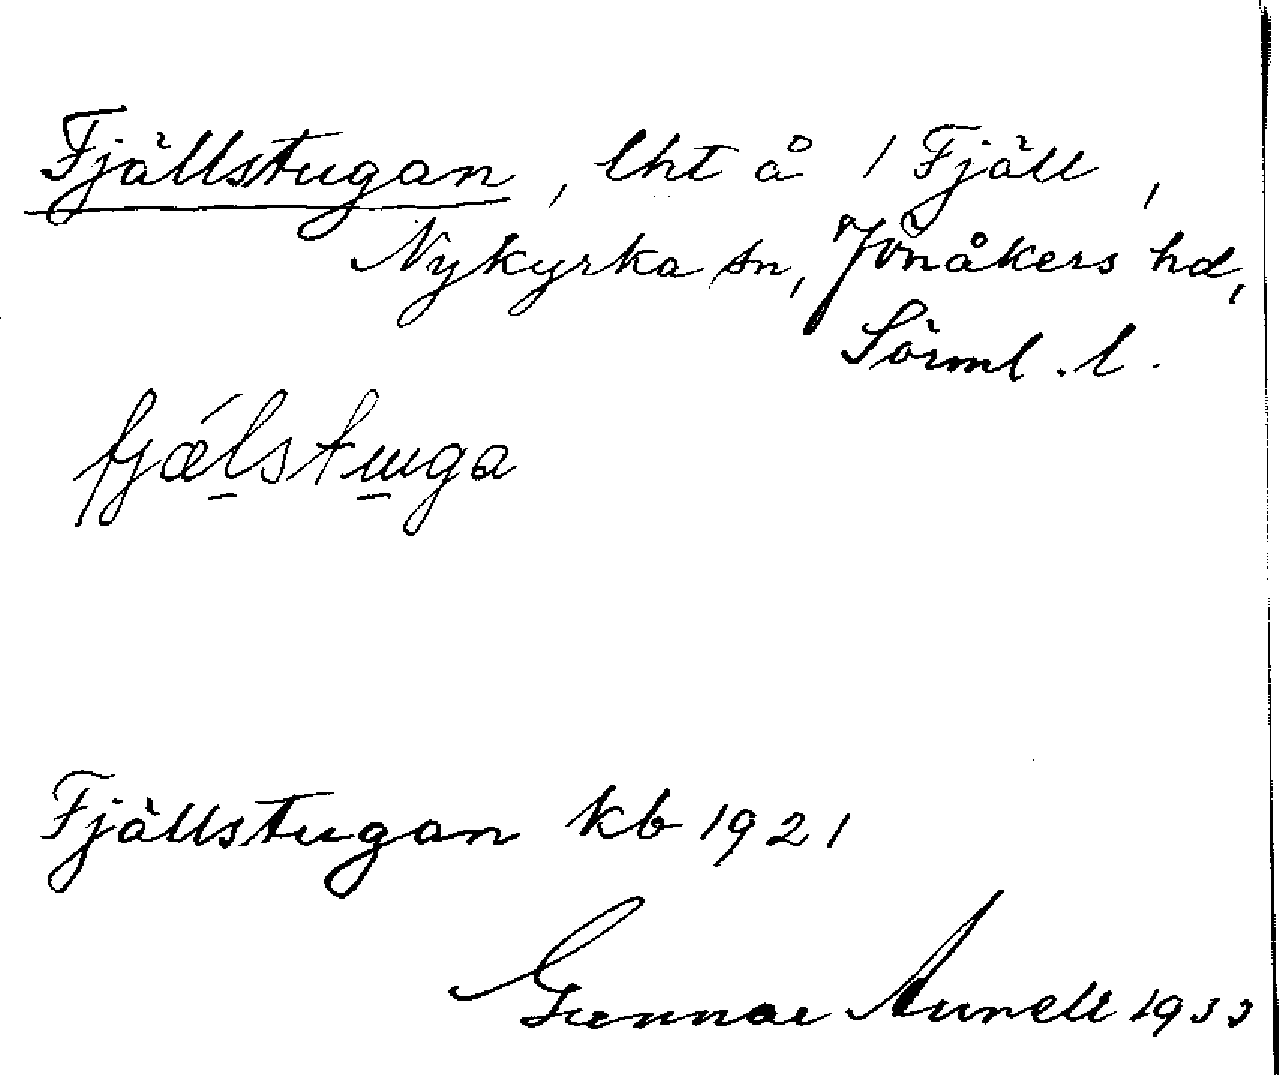 Fjällstugan, lht å 1 Fjäll,
Nykyrka sn, Jönåkers hd,
Sörml. l.
fjǽlstɯga
Fjällstugan kb 1921
Gunnar Aurell 1933